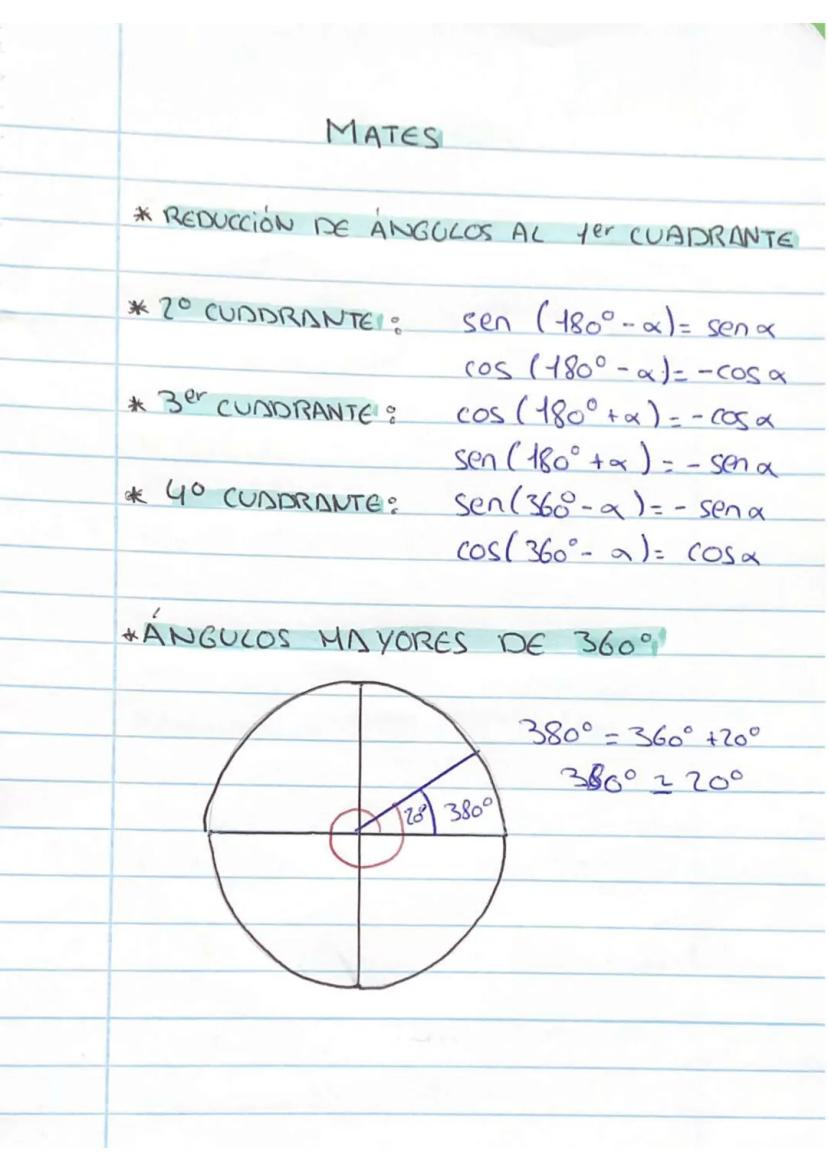 MATES
* REDUCCIÓN DE ÁNGULOS AL 1er CUADRANTE
* 2º CUADRANTE: sen (180º - α) = sen α
cos (180º - α) = - cos α
* 3er CUADRANTE: cos (180º + α) = - cos α
sen (180º + α) = - sen α
* 4º CUADRANTE: sen (360º - α) = - sen α
cos (360º - α) = cos α
* ÁNGULOS MAYORES DE 360º
380º = 360º + 20º
380º ≃ 20º
20º 380º